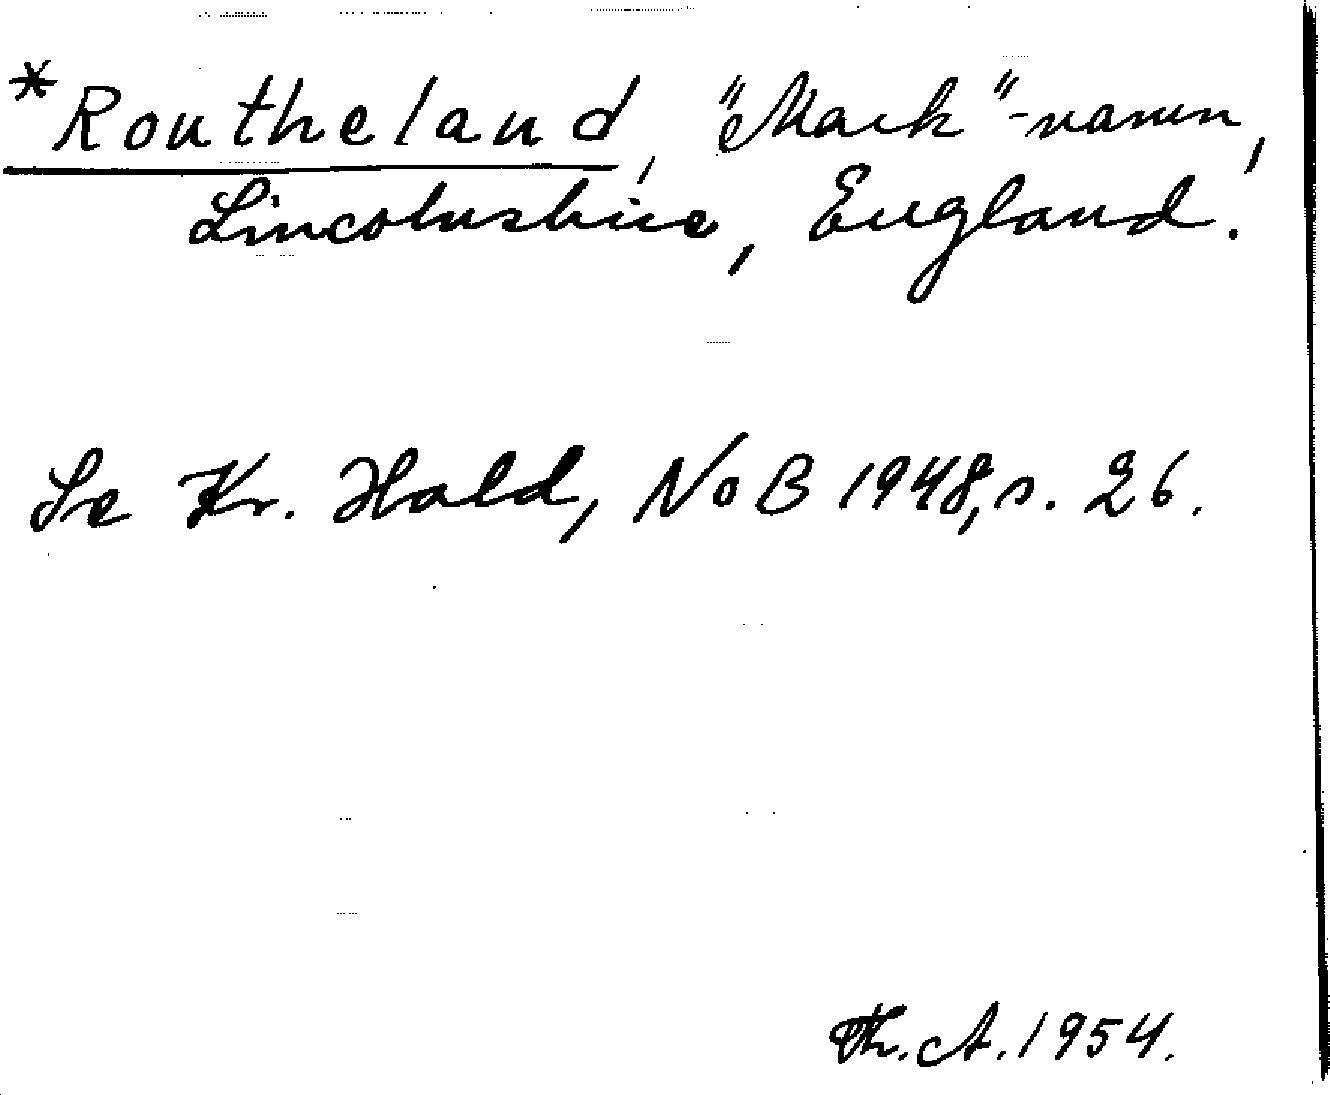 *Routheland, "Mark"-namn,
Lincolnshire, England.
Se Kr. Hald, NoB 1948, s. 26.
Th. A. 1954.